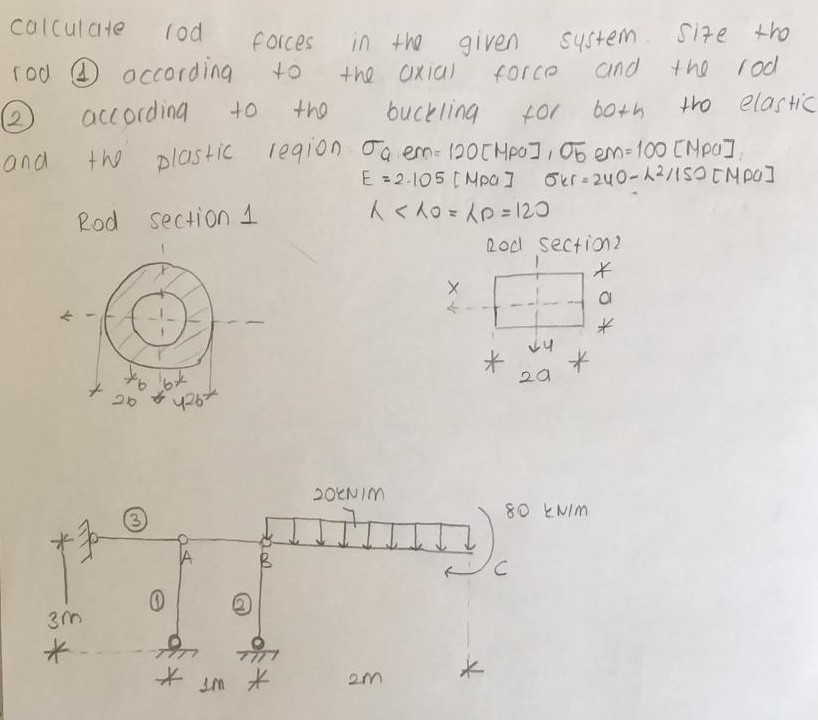 calculate rod forces in the given system. Size the
rod ① according to the axial force and the rod
② according to the buckling for both the elastic
and the plastic region σa em = 120 [MPa], σb em = 100 [MPa],
E = 2.105 [MPa] σkr = 240 - λ²/150 [MPa]
λ < λ0 = λp = 120
Rod section 1
Rod section 2
x
a
y
2a
b b
2b 2b
20kN/m
80 kN/m
③
A
B
C
①
②
3m
1m
2m